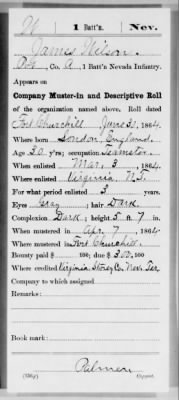 W | 1 Batt'n. | Nev.
James Wilson
Pvt, Co. A, 1 Batt'n Nevada Infantry.
Appears on
Company Muster-in and Descriptive Roll
of the organization named above. Roll dated
Fort Churchill June 30, 1864.
Where born London, England.
Age 30 y'rs; occupation Teamster
When enlisted Mar, 3, 1864.
Where enlisted Virginia, N.T.
For what period enlisted 3 years.
Eyes Gray; hair Dark.
Complexion Dark; height 5 ft. 7 in.
When mustered in Apr, 7, 1864
Where mustered in Fort Churchill.
Bounty paid $ 100; due $ 300 100
Where credited Virginia, Storey Co. Nev. Ter.
Company to which assigned
Remarks:
Book mark:
Palmer
Copyist.